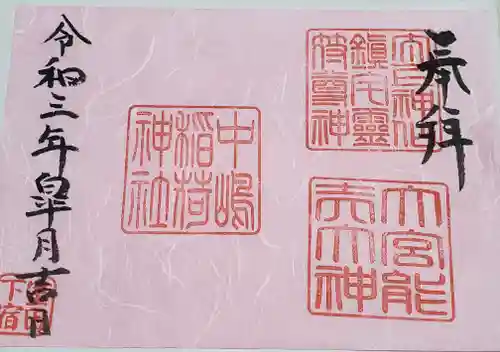 奉拝
鎮宅靈
符尊神
大宮能
売大神
中嶋
稲荷
神社
令和三年皐月吉日
下宿